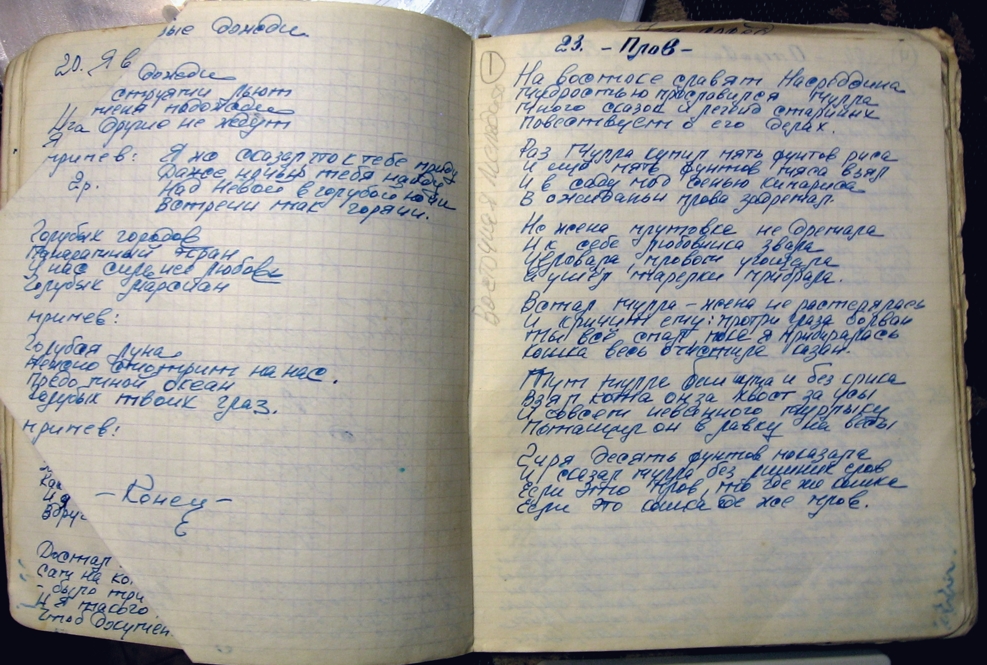 ые дожди
20. Я в
дожди
струями льют
меня подожди
Ига другие не ждут
Я
припев: Я же сказал что к тебе приду
2р. Даже ночью тебя найду
Над Невой в голубой ночи
Встречи так горячи.
Голубых городов
У нас с
Голубых
припев:
Голубая луна
Нежно смотрит на нас.
Предо мной океан
Голубых твоих глаз.
припев:
- Конец -
Как
И я
Вдруг
Достал
Сам на ко.
- было три
И я такого
Чтоб документ
23. - Плов -
На востоке славят Насреддина
Мудростью прославился мулла
Много сказок и легенд старинных
Повествует о его делах.
Раз мулла купил пять фунтов риса
И ещё пять фунтов мяса взял
И в саду под сенью кипариса
В ожиданьи плова задремал.
Но жена плутовка не дремала
И к себе любовника звала
Целовала пловом угощала
А ушёл тарелки прибрала.
Встал мулла - жена не растерялась
И кричит ему: протри глаза болван
Ты всё спал пока я прибиралась
Кошка весь очистила казан.
Тут мулла без шума и без крика
Взял кота он за хвост за усы
И совсем невинного мурлыку
Потащил он в лавку на весы
Гиря десять фунтов показала
И сказал мулла без лишних слов
Если это плов, то где же кошка
Если это кошка где же плов.